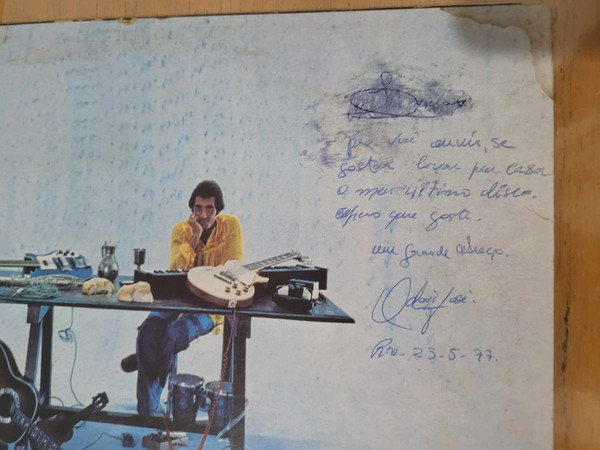 pra você ouvir, se
gostar levar pra casa
o meu último disco.
espero que goste.
um grande abraço.
Odair José.
Rio - 23-5-77.